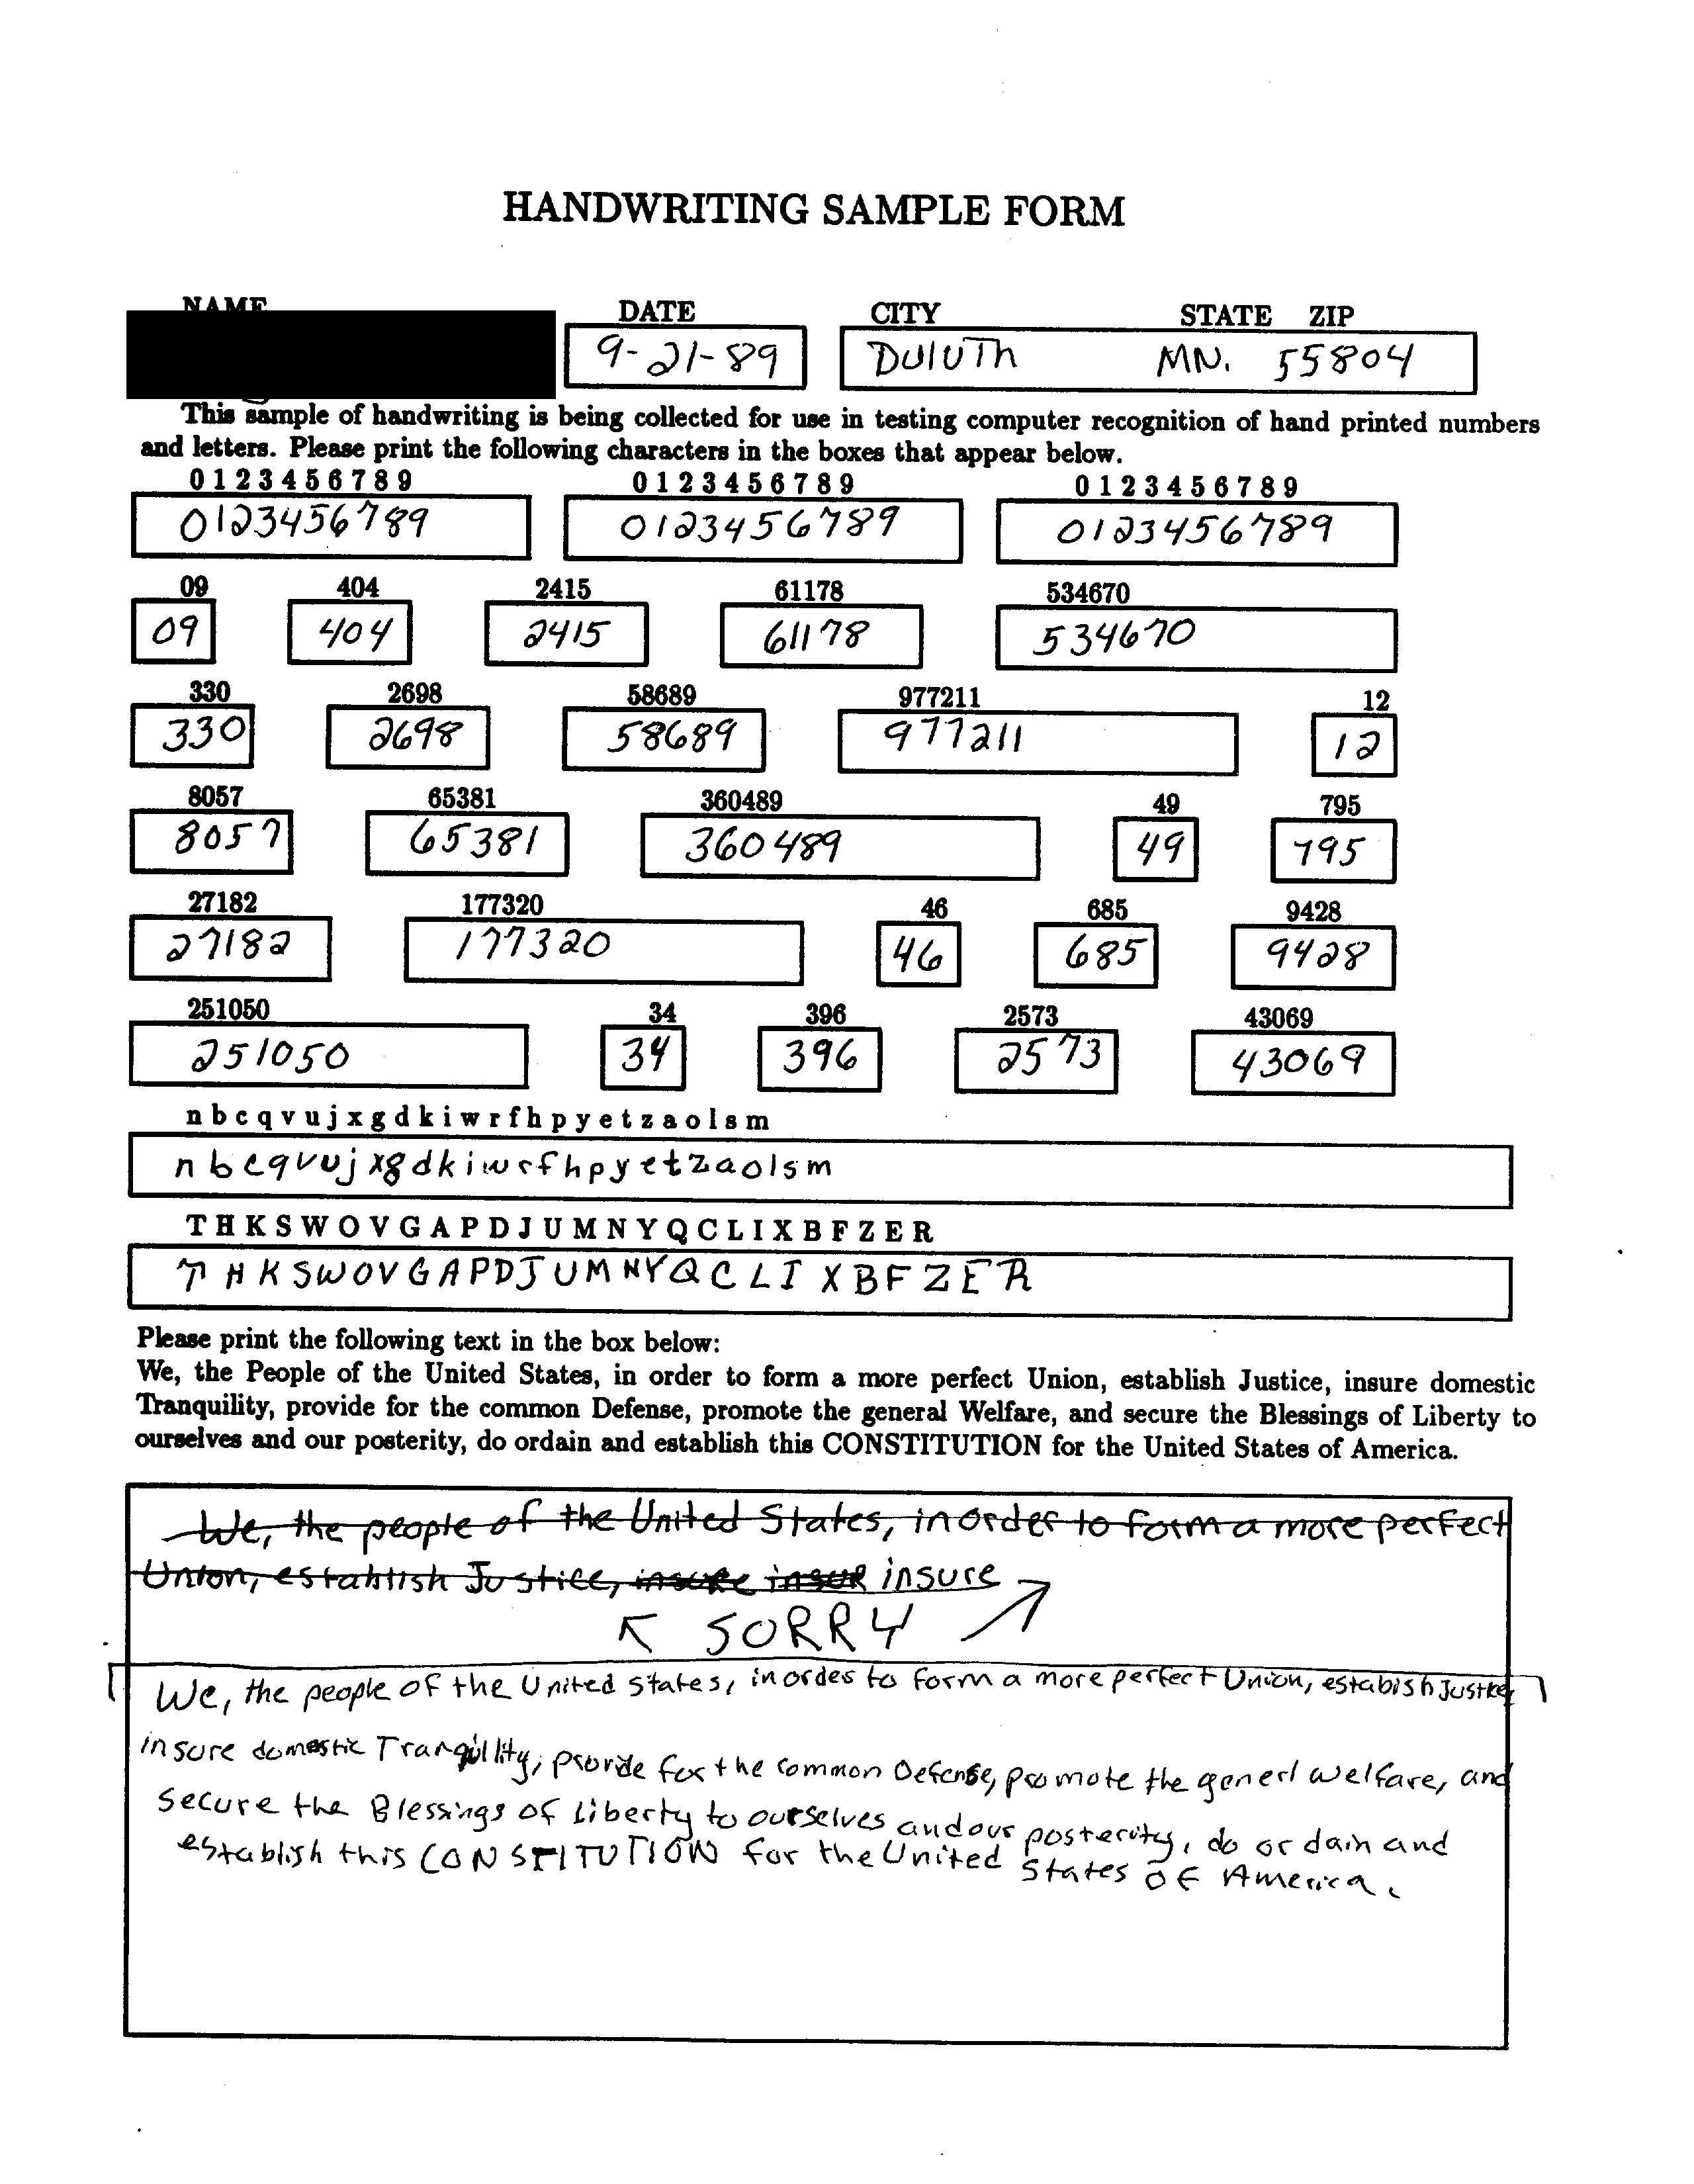 HANDWRITING SAMPLE FORM
NAME DATE CITY STATE ZIP
9-21-89 DULUTh MN. 55804
This sample of handwriting is being collected for use in testing computer recognition of hand printed numbers
and letters. Please print the following characters in the boxes that appear below.
0 1 2 3 4 5 6 7 8 9 0 1 2 3 4 5 6 7 8 9 0 1 2 3 4 5 6 7 8 9
0123456789 0123456789 0123456789
09 404 2415 61178 534670
09 404 2415 61178 534670
330 2698 58689 977211 12
330 2698 58689 977211 12
8057 65381 360489 49 795
8057 65381 360489 49 795
27182 177320 46 685 9428
27182 177320 46 685 9428
251050 34 396 2573 43069
251050 34 396 2573 43069
n b c q v u j x g d k i w r f h p y e t z a o l s m
n b c q v u j x g d k i w r f h p y e t z a o l s m
T H K S W O V G A P D J U M N Y Q C L I X B F Z E R
T H K S W O V G A P D J U M N Y Q C L I X B F Z E R
Please print the following text in the box below:
We, the People of the United States, in order to form a more perfect Union, establish Justice, insure domestic
Tranquility, provide for the common Defense, promote the general Welfare, and secure the Blessings of Liberty to
ourselves and our posterity, do ordain and establish this CONSTITUTION for the United States of America.
We, the people of the United States, in order to form a more perfect
Union, establish Justice, insure insur insure
SORRY
We, the people of the United states, in order to form a more perfect Union, estabish Justice,
insure domestic Tranquillity, provide for the common Defense, promote the generl welfare, and
Secure the Blessings of Liberty to ourselves and our posterity, do ordain and
establish this CONSTITUTION for the United States of America.